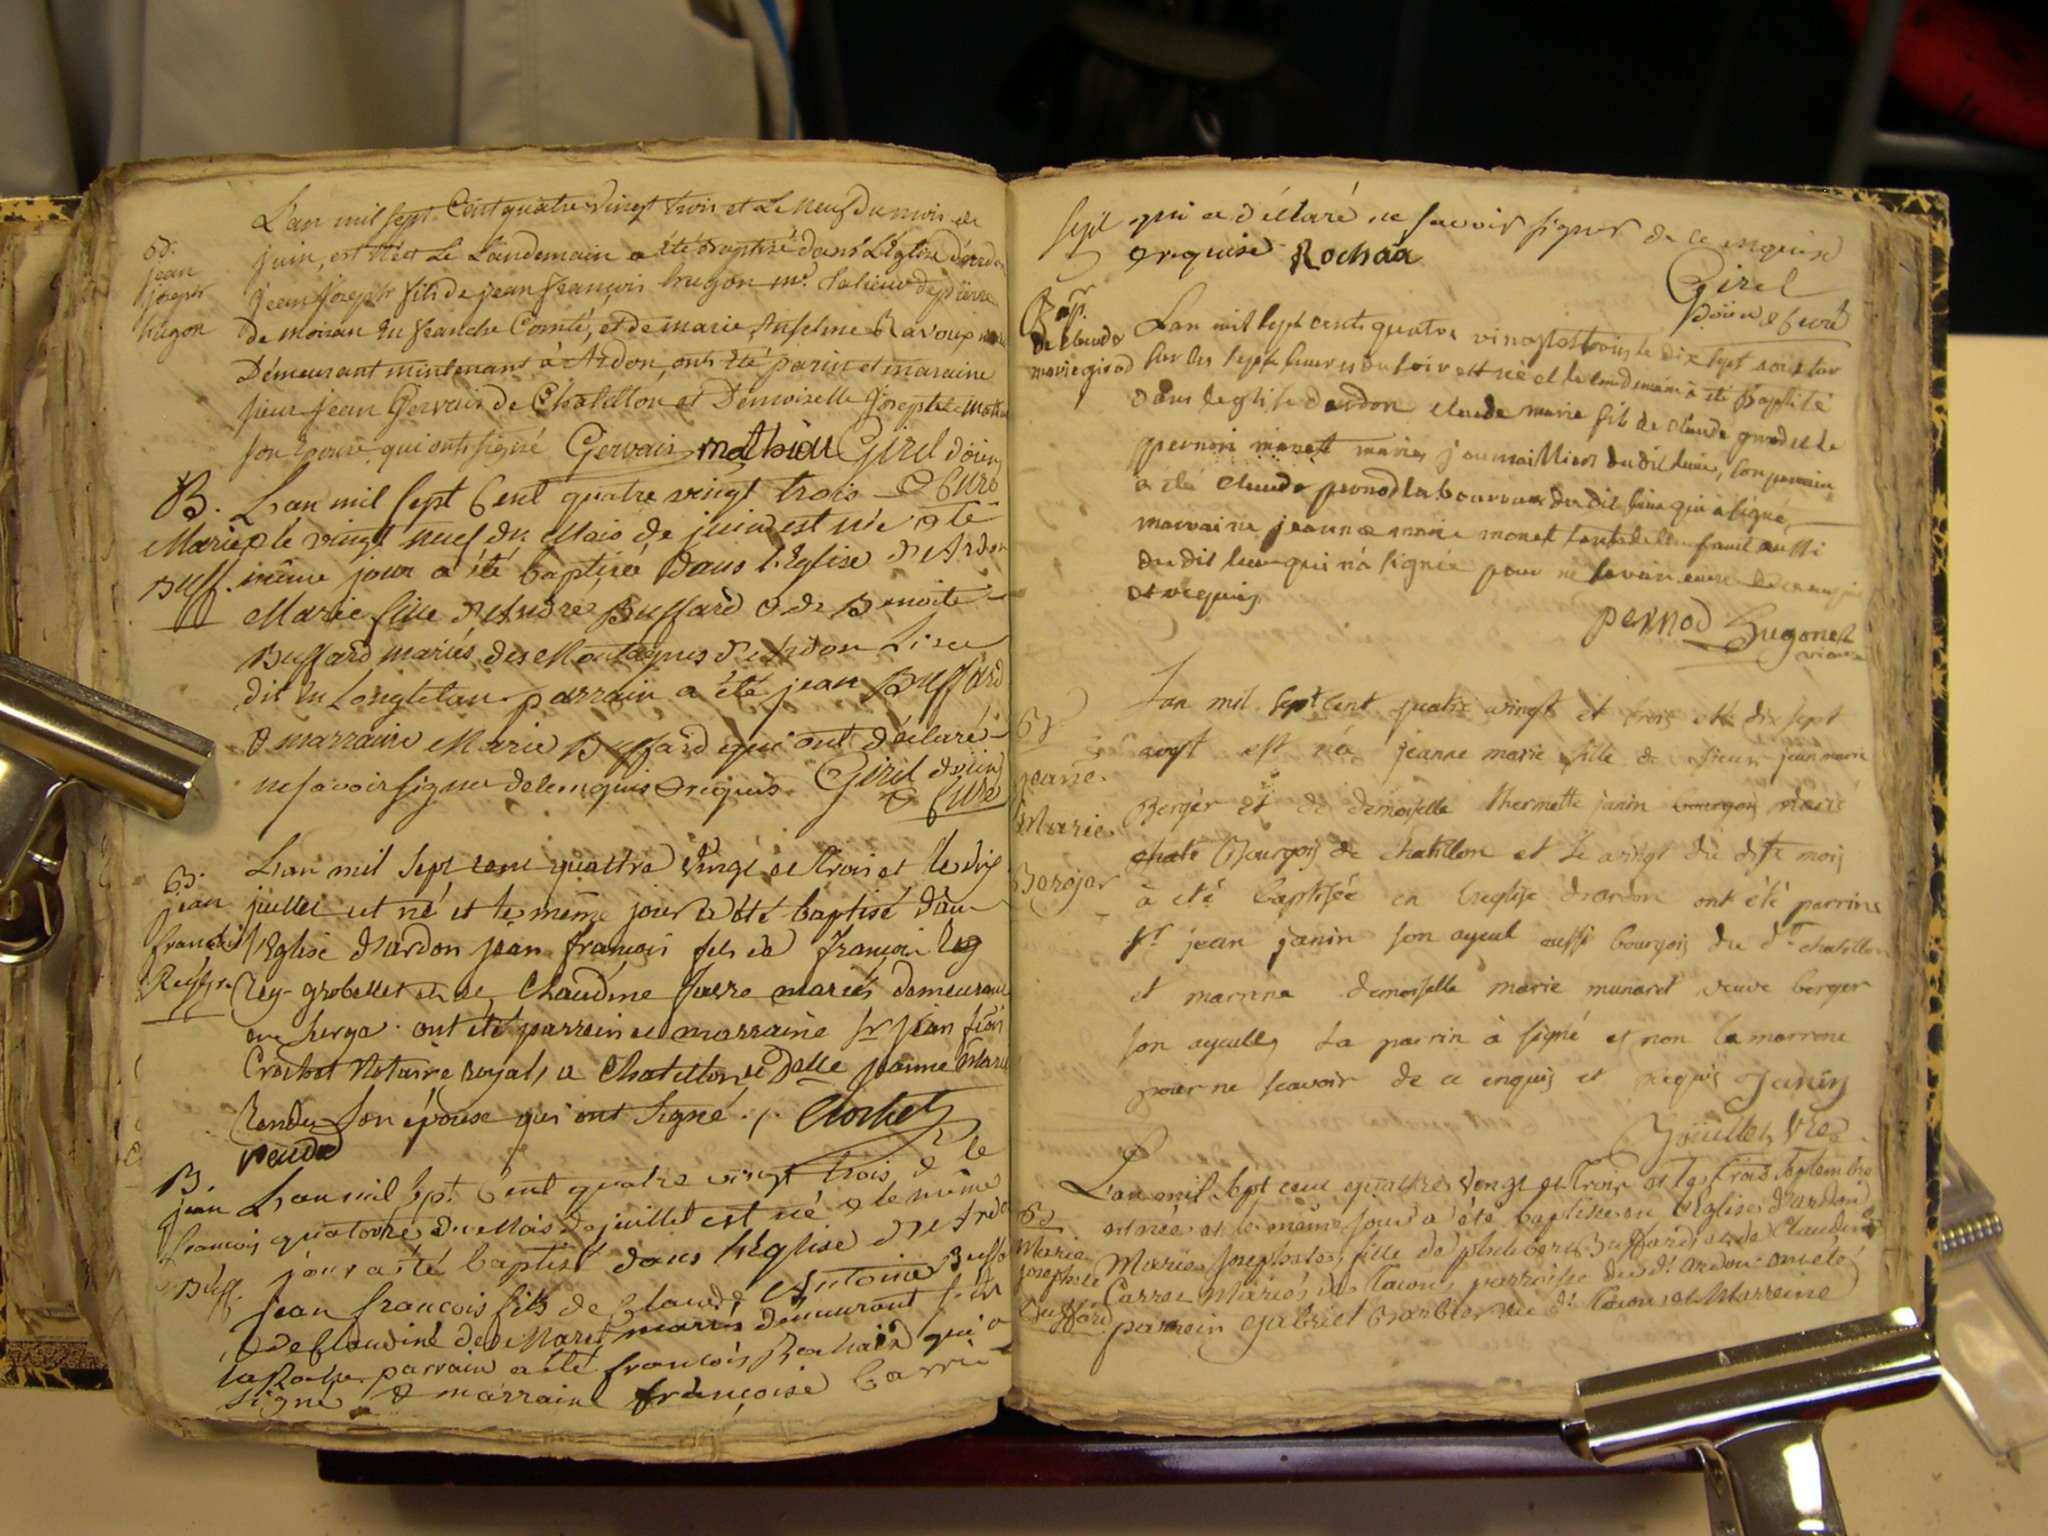 L'an mil sept Cent quatre vingt trois et Le neuf du mois de
juin, est né et Le Landemain a été baptisé dans L'Eglise d'ardon
Bd. jean joseph hugon
jean joseph fils de jean francois hugon
de moiran en franche Comté, et de marie Anselme Ravoux
Demeurant mintenant à Ardon, onts été parin et maraine
sieur jean Gervais de Châtillon et Demoiselle josephte
son Epouse qui onts signé Gervais mathieu Girel doien
& Curé
B. Marie Buff.
L'an mil sept Cent quatre vingt trois
& le vingt neuf du Mois de juin est née & le
même jour a été baptisée dans l'Eglise d'Ardon
Marie fille d'André Buffard & de Benoite
Buffard mariés, des Montagnes d'Ardon Lieu
dit en parrain a été jean Buffard
& marraine Marie Buffard qui ont déclaré
ne savoir signer de le enquis & requis Girel doien
& Curé
Bd. jean francois
L'an mil sept cent quattre vingt et trois et le dix
juillet est né et le même jour a été baptisé dans
l'Eglise d'ardon jean francois fils de francois
Rey-grobellet et de Claudine mariés demeurant
ont été parrein et marraine Sr jean
Crochet Notaire royal, a Chatillon et Delle jeanne Marie
son épouse qui ont signé Crochet
B. jean francois Buff.
L'an mil sept Cent quatre vingt trois & le
quatorze du Mois de juillet est né & le même
jour a été baptisé dans l'Eglise d'Ardon
jean francois fils de Claude Antoine
& de Claudine mariés demeurant
parrain a été françois Rochaix qui a
signé & marraine françoise
qui a déclaré ne savoir signer de ce enquise
& requise Rochaa
Girel
doien & curé
Bapt. de claude marie girod
Lan mil sept cents quatre vingts trois le dix sept
sur les sept heures du soir est né et le lendemain à été Baptisé
dans leglise dardon claude marie fils de claude
monest mariés dudit lieu, son parrain
à été claude pernod laboureur du dit lieu qui à signé
marraine jeanne marie monet aussi
du dit lieu qui n'à signée pour ne savoir
et requis
pernod Hugonet
vicaire
Bd jeane Marie Berger
L'an mil sept cent quatre vingt et trois et le dix sept
aoust est née jeanne marie fille de sieur jean marie
Berger et de demoiselle thermette janin
Bourgois de chatillon et le vingt du dit mois
à été baptisée en l'eglise d'ardon ont été parrins
sr jean janin son ayeul aussi bourgois du dt chatillon
et marrine demoiselle marie munaret veuve berger
son ayeulle, Le parrin à signé et non la marrine
pour ne scavoir de ce enquis et requis Janin
L'an mil Sept cent quattre vingt et trois et le trois Septembre
Bd Marie josephte Buffard
est née et le même jour a été baptisée en l'Eglise d'ardon
Marie josephte, fille de philibert Buffard et de Claudine
Carrez Mariés de parroisse du dt ardon ont été
parrein gabriel barbier du dt et Marreine